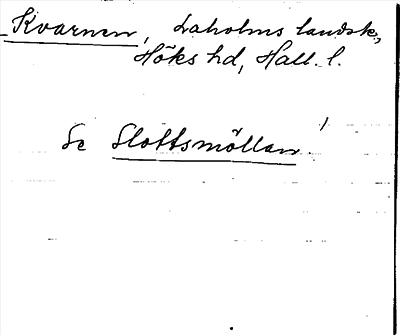 Kvarnen, Laholms landsk.,
Höks hd, Hall. l.
Se Slottsmöllan!